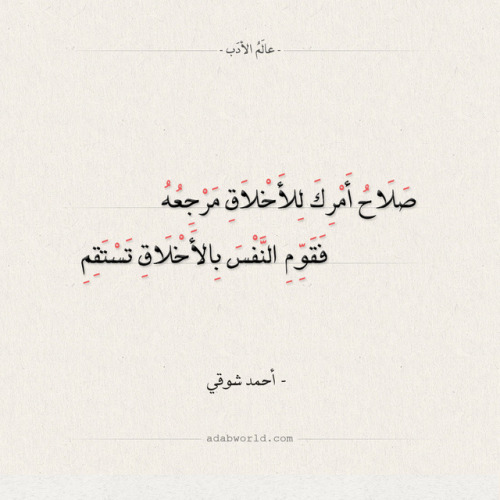 - عالَمُ الأدَب -
صَلَاحُ أَمْرِكَ لِلأَخْلَاقِ مَرْجِعُهُ
فَقَوِّمِ النَّفْسَ بِالأَخْلَاقِ تَسْتَقِمِ
- أحمد شوقي
adabworld.com